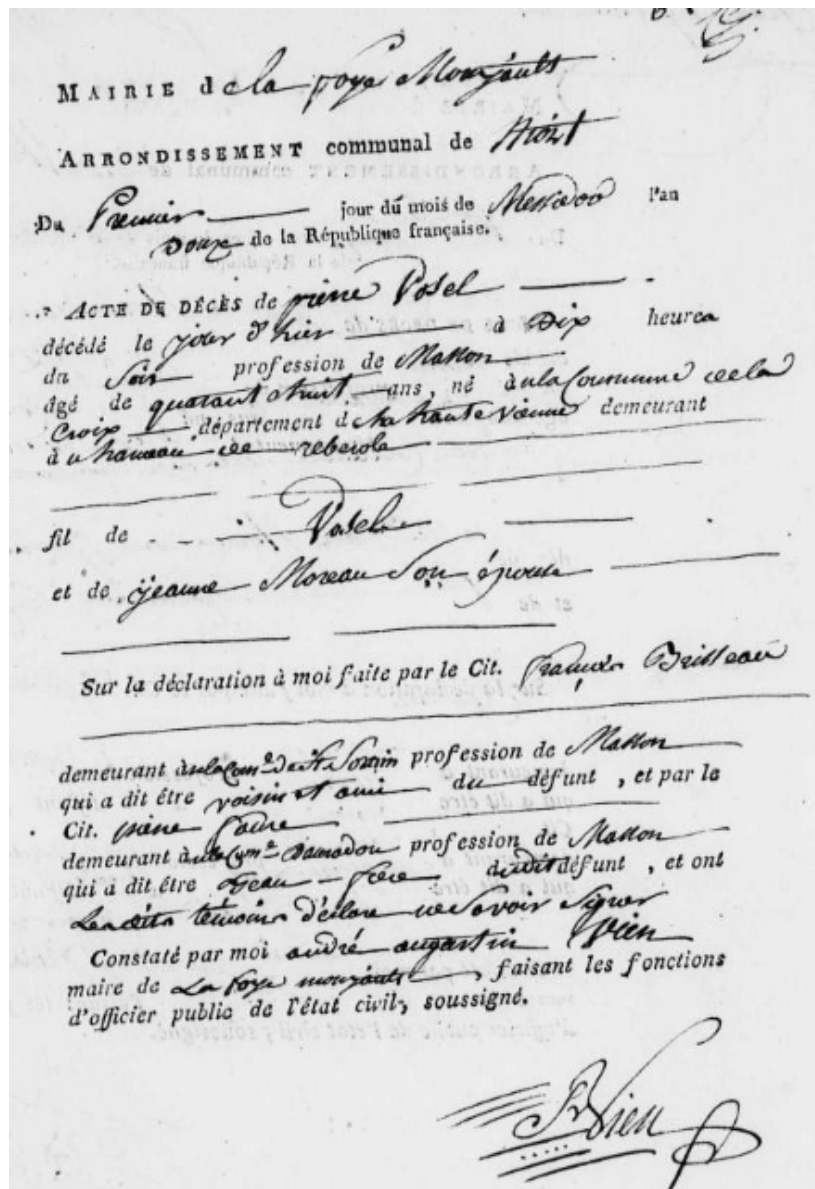 MAIRIE de la foye Monjaults
ARRONDISSEMENT communal de Niort
Du Premier jour du mois de Messidor l'an
Douze de la République française.
ACTE DE DÉCÈS de pierre Posel
décédé le jour d'hier à Dix heures
du Soir profession de Masson
âgé de quarant et huit ans, né à la Commune de la
Croix département de la haute vienne demeurant
à u hameau de reberole
fil de Posel
et de jeanne Moreau Son épouse
Sur la déclaration à moi faite par le Cit. françois Brisseau
demeurant à la Com.e de St Sornin profession de Masson
qui a dit être voisin et ami du défunt, et par le
Cit. pierre faure
demeurant à la Com.e profession de Masson
qui a dit être Beau frère dudit défunt, et ont
Lesdits témoins déclaré ne Savoir Signer
Constaté par moi andré augustin Vien
maire de La foye monjaults, faisant les fonctions
d'officier public de l'état civil, soussigné.
Vien